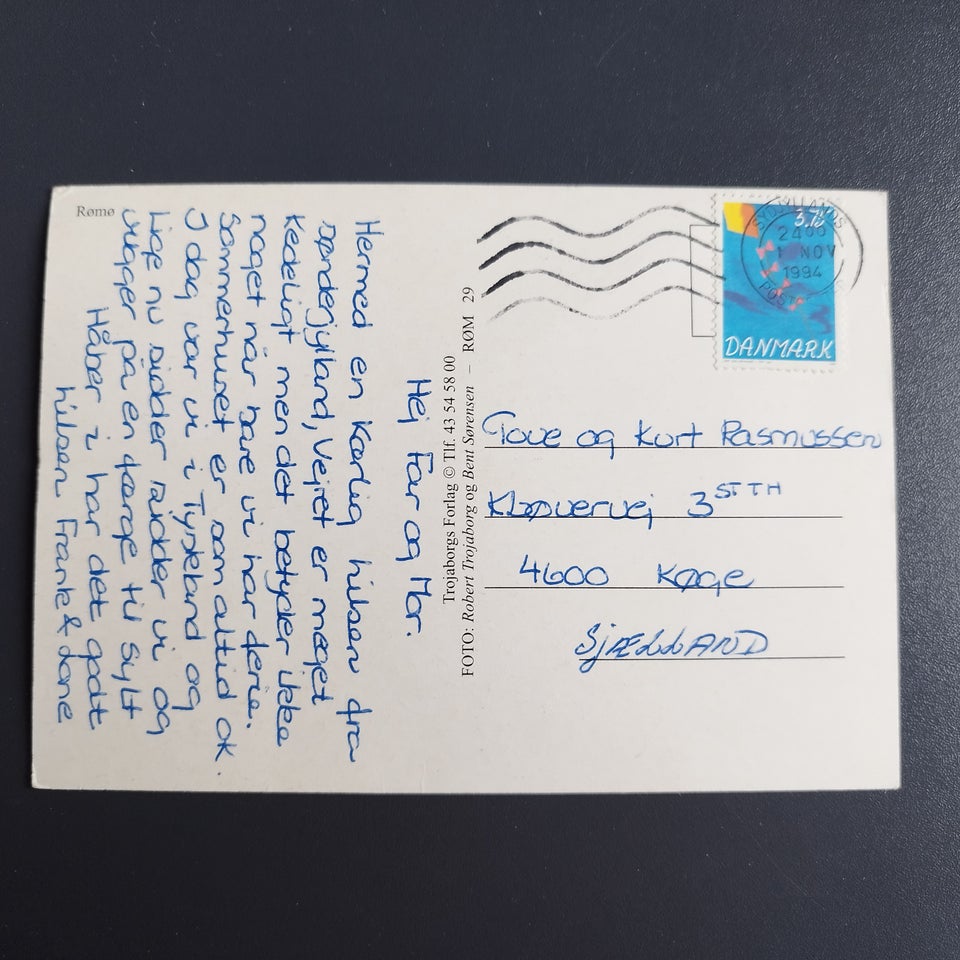 Rømø
Hej Far og Mor.
Hermed en kærlig hilsen fra
Sønderjylland, Vejret er meget
Kedeligt men det betyder ikke
noget når bare vi har ferie.
Sommerhuset er som altid ok.
I dag var vi i Tyskland og
Lige nu sidder sidder vi og
vugger på en færge til Sylt
Håber i har det godt
hilsen Frank & Lone
Trojaborgs Forlag © Tlf. 43 54 58 00
FOTO: Robert Trojaborg og Bent Sørensen – RØM 29
SYDJYLLANDS
2400
1 NOV
1994
POST
3.75
DANMARK
Tove og Kurt Rasmussen
Kløvervej 3 ST TH
4600 Køge
SJÆLLAND